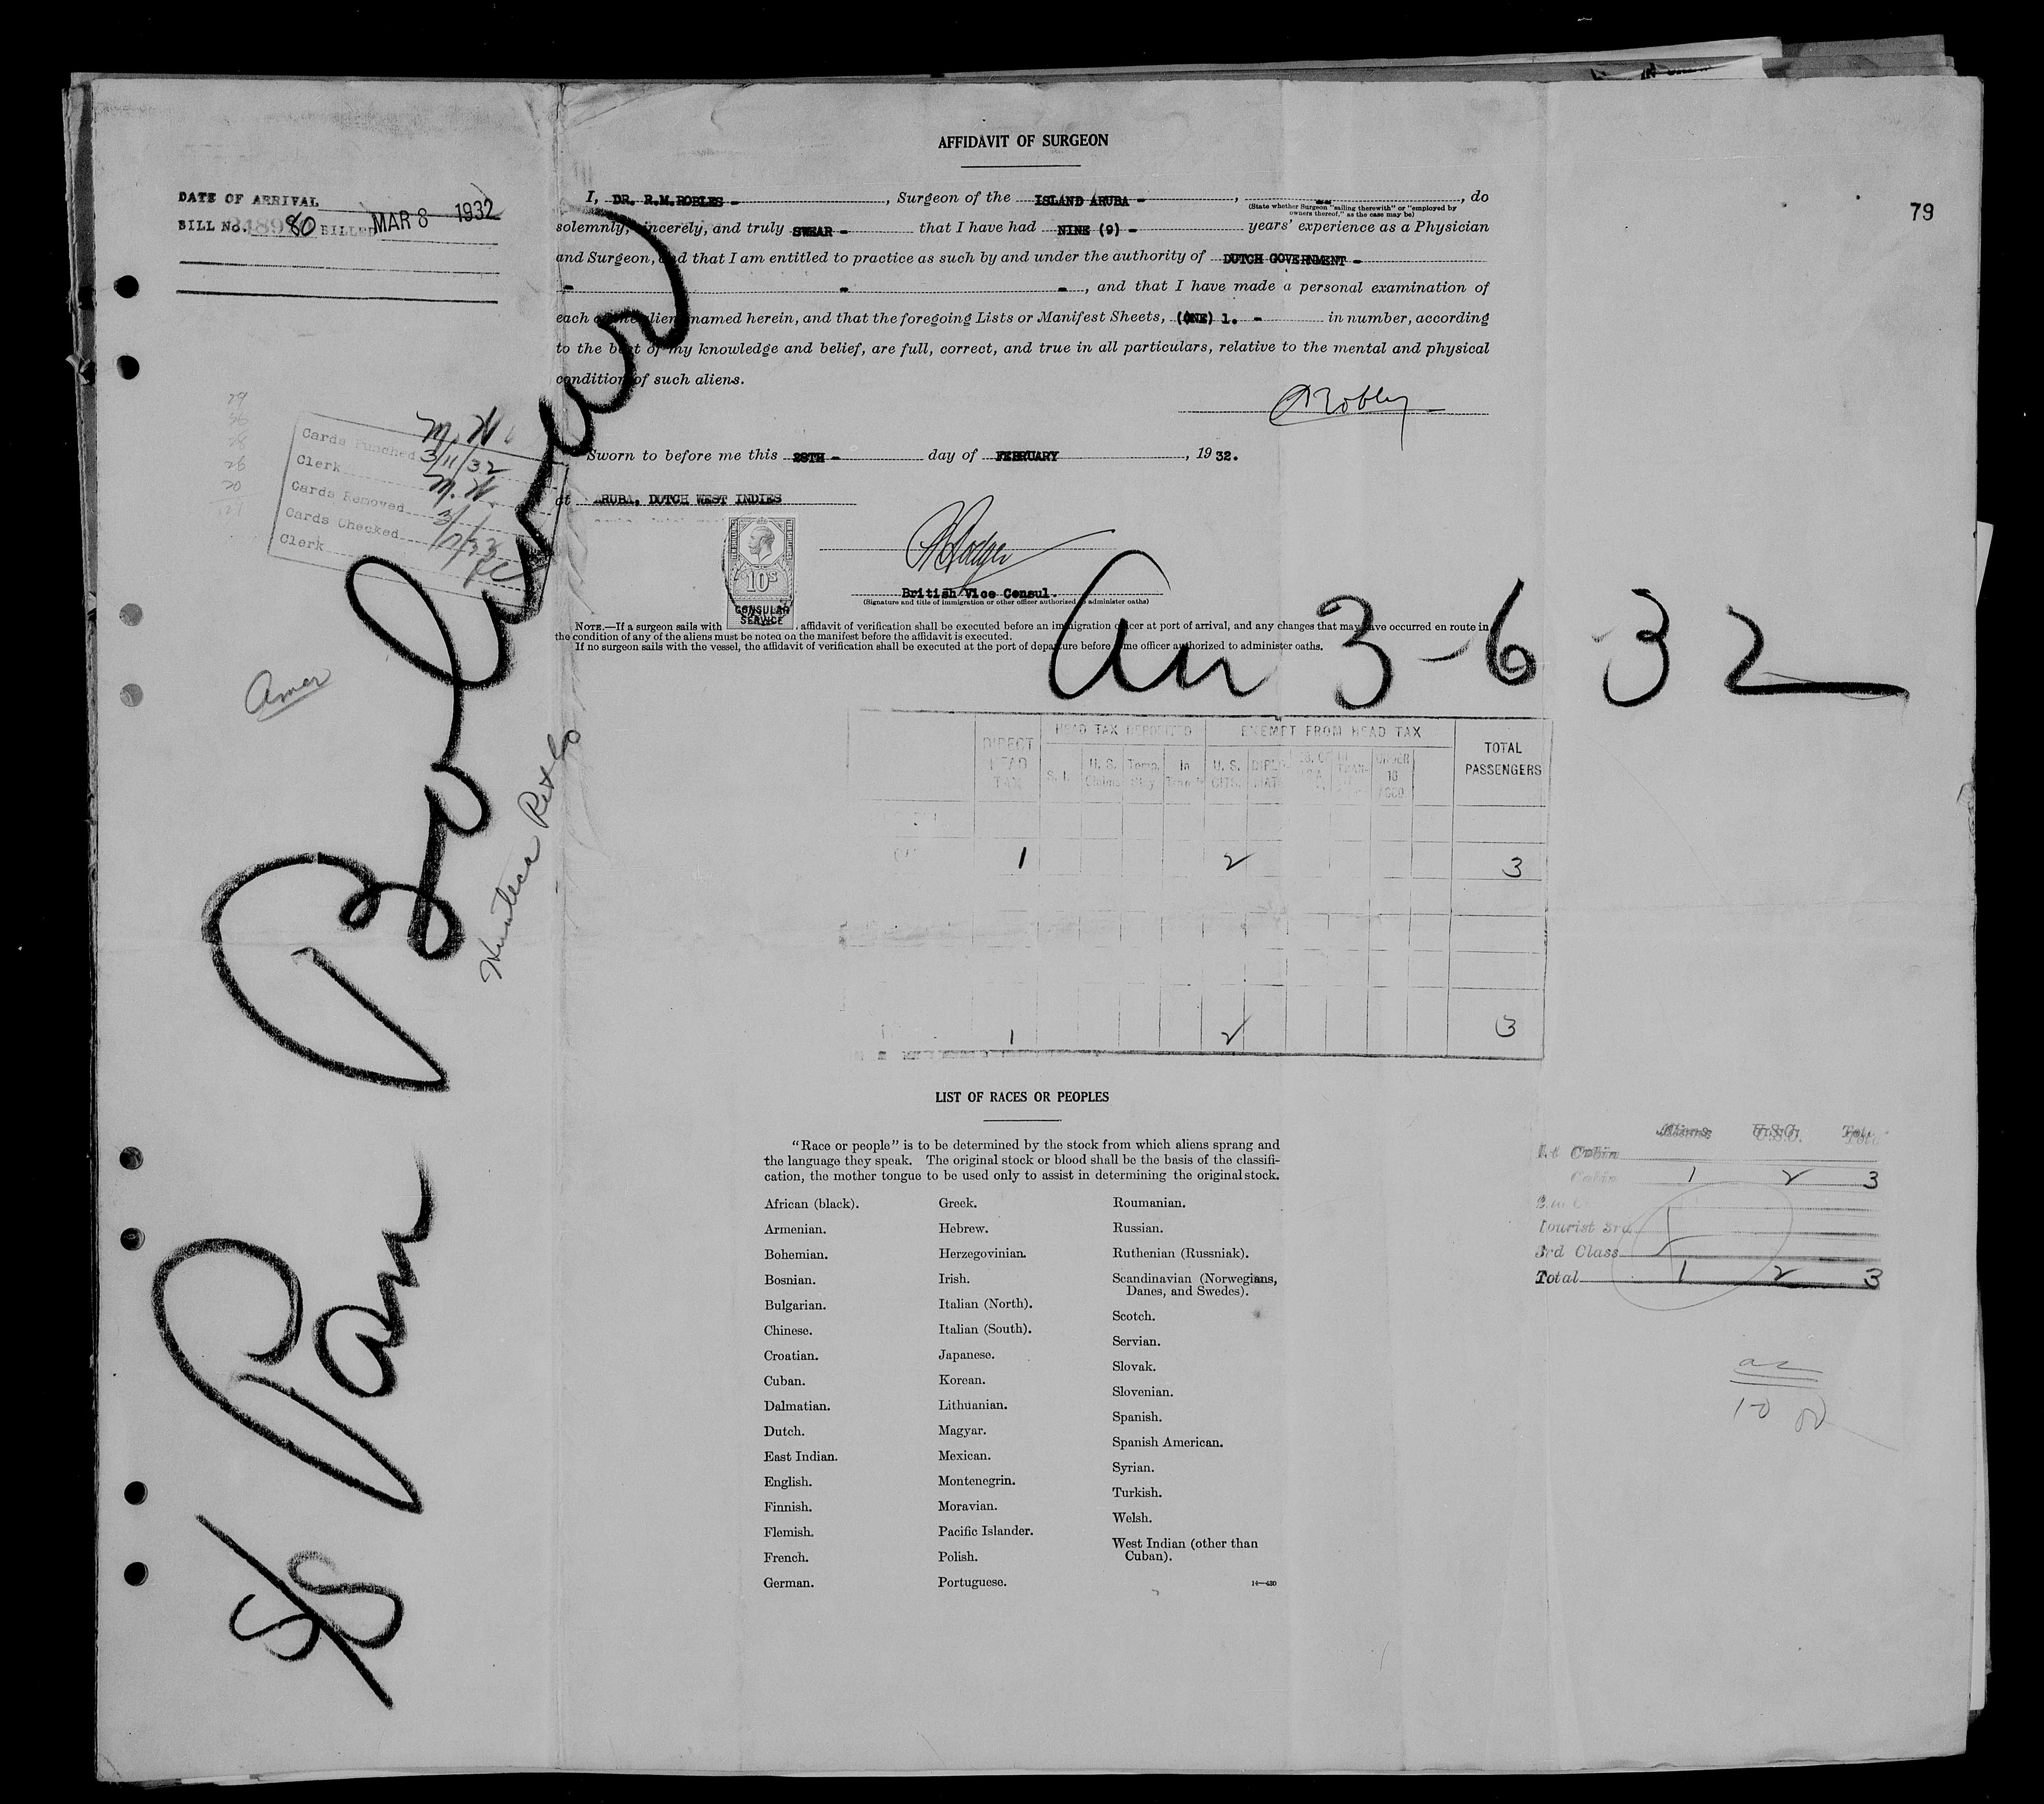 79
DATE OF ARRIVAL
BILL No. 80 BILLED MAR 8 1932
AFFIDAVIT OF SURGEON
I, DR. R.M.ROBLES - , Surgeon of the ISLAND ARUBA - , -- , do
(State whether Surgeon "sailing therewith" or "employed by
owners thereof," as the case may be)
solemnly, sincerely, and truly SWEAR - that I have had NINE (9) - years' experience as a Physician
and Surgeon, and that I am entitled to practice as such by and under the authority of DUTCH GOVERNMENT -
- - - , and that I have made a personal examination of
each of the aliens named herein, and that the foregoing Lists or Manifest Sheets, (ONE) 1. - in number, according
to the best of my knowledge and belief, are full, correct, and true in all particulars, relative to the mental and physical
condition of such aliens.
Sworn to before me this 28TH - day of FEBRUARY , 19 32.
at ARUBA, DUTCH WEST INDIES
10S
CONSULAR
SERVICE
British Vice Consul.
(Signature and title of immigration or other officer authorized to administer oaths)
NOTE.—If a surgeon sails with , affidavit of verification shall be executed before an immigration officer at port of arrival, and any changes that may have occurred en route in
the condition of any of the aliens must be noted on the manifest before the affidavit is executed.
If no surgeon sails with the vessel, the affidavit of verification shall be executed at the port of departure before some officer authorized to administer oaths.
Cards Punched M. N. 3/11/32
Clerk M. N.
Cards Removed
Cards Checked
Clerk
Amer
S/S Pan Bolivar
Huasteca Pet Co
Arr 3-6-32
DIRECT HEAD TAX
HEAD TAX DEPOSITED
EXEMPT FROM HEAD TAX
TOTAL PASSENGERS
S. I. U. S. Claims Temp. Stay In Transit U. S. CITS. UNDER 16 ACCD
1 2 3
1 2 3
LIST OF RACES OR PEOPLES
"Race or people" is to be determined by the stock from which aliens sprang and
the language they speak. The original stock or blood shall be the basis of the classifi-
cation, the mother tongue to be used only to assist in determining the original stock.
African (black).
Armenian.
Bohemian.
Bosnian.
Bulgarian.
Chinese.
Croatian.
Cuban.
Dalmatian.
Dutch.
East Indian.
English.
Finnish.
Flemish.
French.
German.
Greek.
Hebrew.
Herzegovinian.
Irish.
Italian (North).
Italian (South).
Japanese.
Korean.
Lithuanian.
Magyar.
Mexican.
Montenegrin.
Moravian.
Pacific Islander.
Polish.
Portuguese.
Roumanian.
Russian.
Ruthenian (Russniak).
Scandinavian (Norwegians,
Danes, and Swedes).
Scotch.
Servian.
Slovak.
Slovenian.
Spanish.
Spanish American.
Syrian.
Turkish.
Welsh.
West Indian (other than
Cuban).
14—430
Aliens U.S.C. Total
Cabin
Cabin 1 2 3
Tourist 3rd
3rd Class
Total 1 2 3